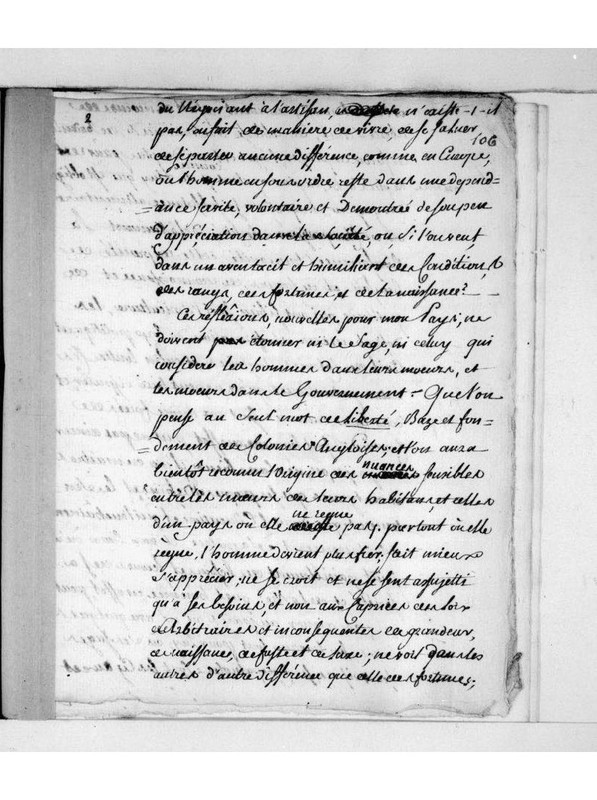 2
du Négociant a l'artisan, n'existe-t-il
106
pas, en fait de maniere de vivre, de se saluer,
de se parler aucune différence, comme en Europe,
ou l'homme en sous ordre reste dans une depend=
=ance servile, volontaire et Demontrée de son peu
d'appréciation dans la société, ou si souvent,
dans un avent tacit et humiliant des Conditions,
des rangs, des fortunes, et de la naissance?
Ces réfléxions, nouvelles pour mon Pays, ne
doivent pas étonner ni le Sage, ni celuy qui
considere les hommes dans leurs moeurs, et
les moeurs dans le Gouvernement - Que l'on
pense au seul mot de liberté, Baze et fon=
=dement des Colonies Angloises, et l'on aura
bientôt reconnu l'origine des nuances sensibles
entre les moeurs de leurs habitans, et celles
d'un pays ou elle ne regne pas; partout ou elle
regne, l'homme devient plus fier, sait mieux
s'apprécier, ne se croit et ne se sent assujetti
qu'a ses besoins, et non aux Caprices des loix
Arbitraires et inconsequentes de grandeur,
de naissance, de faste et de luxe; ne voit dans les
autres d'autre différence que celle des fortunes;